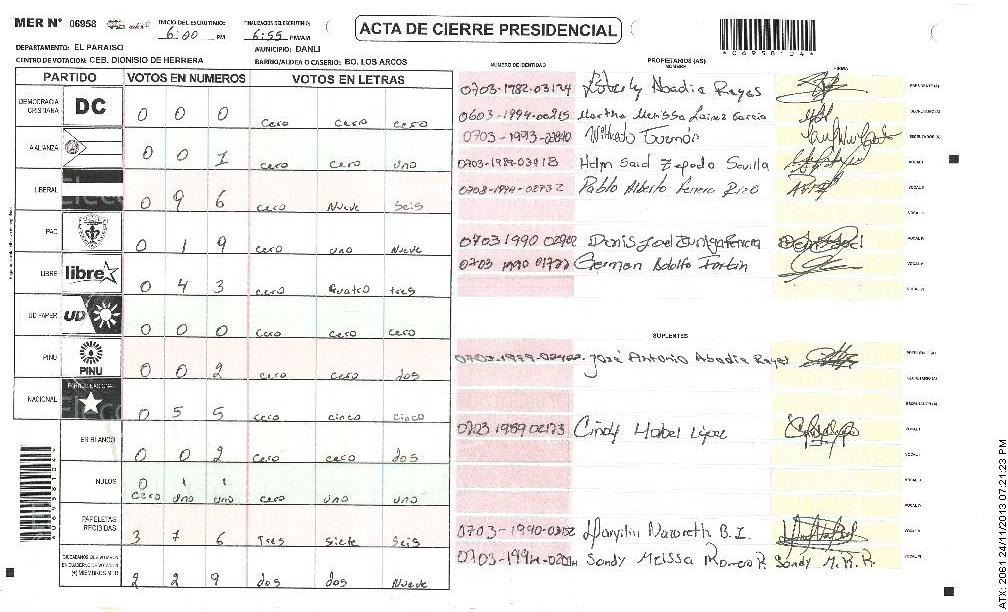 MER N° 06958
INICIO DEL ESCRUTINIO: 6:00 PM
FINALIZACION DEL ESCRUTINIO: 6:55 PM/AM
ACTA DE CIERRE PRESIDENCIAL
DEPARTAMENTO: EL PARAISO
MUNICIPIO: DANLI
CENTRO DE VOTACION: CEB. DIONISIO DE HERRERA
BARRIO/ALDEA O CASERIO: BO. LOS ARCOS
PARTIDO VOTOS EN NUMEROS VOTOS EN LETRAS
NUMERO DE IDENTIDAD
PROPIETARIOS (AS)
NOMBRE
FIRMA
DEMOCRACIA CRISTIANA DC 0 0 0 cero cero cero
A ALIANZA 0 0 1 cero cero uno
LIBERAL 0 9 6 cero Nueve seis
PAC 0 1 9 cero uno Nueve
LIBRE libre 0 4 3 cero Quatro tres
UD FAPER UD 0 0 0 cero cero cero
PINU PINU 0 0 2 cero cero dos
NACIONAL PARTIDO NACIONAL 0 5 5 cero cinco cinco
EN BLANCO 0 0 2 cero cero dos
NULOS 0 1 1 cero uno uno
cero uno uno
PAPELETAS RECIBIDAS 3 7 6 Tres siete seis
CIUDADANOS QUE VOTARON EN CUADERNO DE VOTACION (+) MIEMBROS MER 2 2 9 dos dos Nueve
Abadia Reyes PRESIDENTE (A)
0603-1994-00215 Martha Melissa Lainez Garcia
Wilfredo Guzmán
Said Zepeda Sevilla VOCAL I
0703-1994-02732 Pablo Alberto
0703 1990 02902 Denis Joel Zuniga Ferrera VOCAL IV
German Adolfo VOCAL V
VOCAL VI
SUPLENTES
José Antonio Abadia Reyes PRESIDENTE (A)
SECRETARIO (A)
0703 1989 02173 Cindy Mabel López VOCAL I
VOCAL II
Nazareth B. I.
Sandy Melissa Sandy M. R. R.
*06958104*
ATX: 2061 24/11/2013 07:21:23 PM